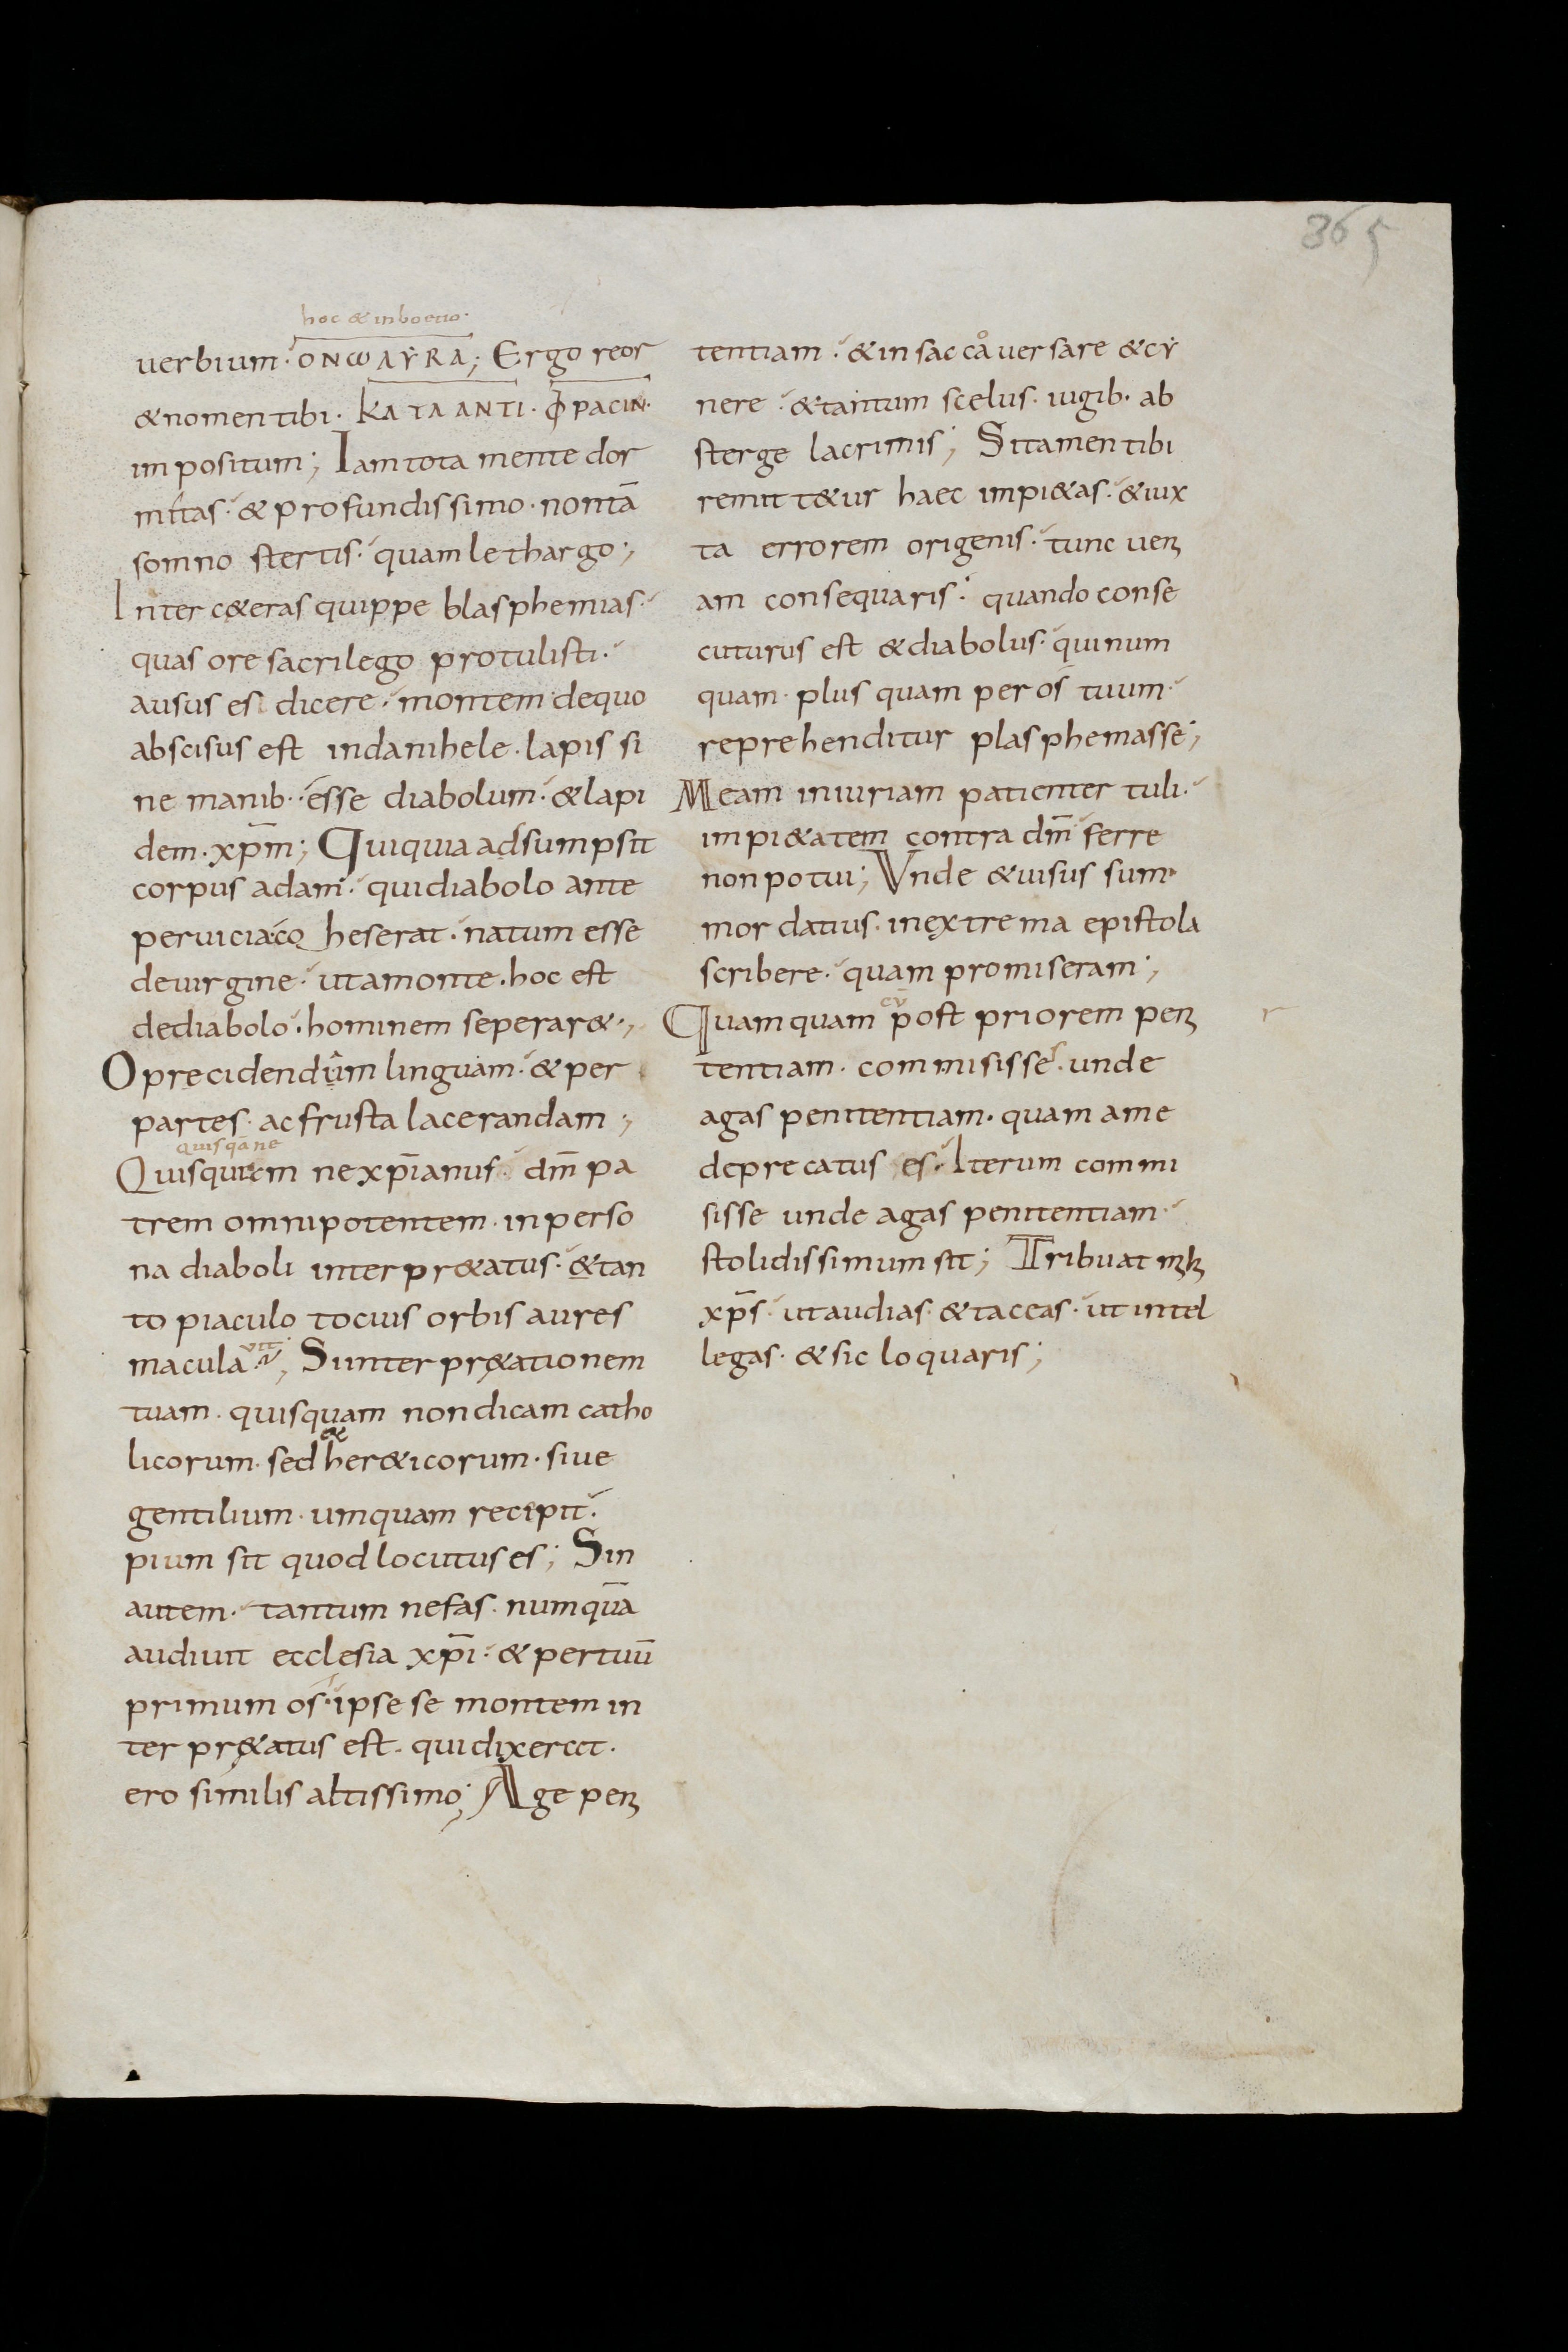 365
hoc & in boetio·
uerbium· ΟΝω ΛΥRΑ; Ergo reor
& nomen tibi· ΚΑΤΑ ΑΝΤΙ· ΦΡΑCΙΝ·
impositum; Iam tota mente dor
mitas· & profundissimo· non tā
somno stertis· quam lethargo;
Inter c&eras quippe blasphemias·
quas ore sacrilego protulisti·
ausus es dicere· montem de quo
abscisus est in danihele· lapis si
ne manib·· esse diabolum· & lapi
dem· xp̄m; Qui quia adsumpsit
corpus adam· qui diabolo ante
per uicia heserat· natum esse
de uirgine· ut a monte· hoc est
de diabolo· hominem seperar&·;
O precidendum linguam· & per
partes· ac frusta lacerandam;
quisqā ne
Quisquem ne xp̄ianus· dm̄ pa
trem omnipotentem· in perso
na diaboli interpr&atus· & tan
to piaculo tocius orbis aures
macula uit; Si interpr&ationem
tuam· quisquam non dicam catho
licorum· sed her&icorum· siue
gentilium· umquam recipit·
pium sit quod locutus es; Sin
autem· tantum nefas· numquā
audiuit ecclesia xp̄i· & per tuū
primum os· ipse se montem in
terpr&atus est· qui dixerat·
ero similis altissimo; Age peni
tentiam· & in sacco uersare & cy
nere· & tantum scelus· iugib· ab
sterge lacrimis; Si tamen tibi
remitt&ur haec impi&as· & iux
ta errorem origenis· tunc ueni
am consequaris· quando conse
cuturus est & diabolus· qui num
quam· plus quam per os tuum·
reprehenditur plasphemasse;
Meam iniuriam patienter tuli·
impi&atem contra dm̄ ferre
non potui; Vnde & uisus sum·
mordatius· in extrema epistola
scribere· quam promiseram;
Quamquam post priorem peni
r
tentiam· commisisse· unde
agas penitentiam· quam a me
deprecatus es· Iterum commi
sisse unde agas penitentiam·
stolidissimum sit; Tribuat
xp̄s· ut audias· & taceas· ut intel
legas· & sic loquaris;